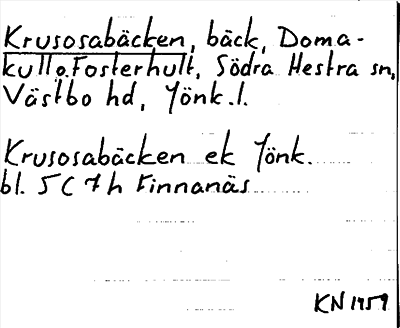 Krusosabäcken, bäck, Doma-
kull o. Fosterhult, Södra Hestra sn,
Västbo hd, Jönk.l.
Krusosabäcken ek Jönk.
bl. 5 C 7 h Finnanäs
KN 1959